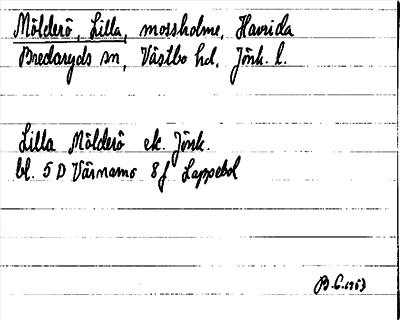 Mölderö, Lilla, mossholme, Havrida
Bredaryds sn, Västbo hd, Jönk. l.
Lilla Mölderö ek. Jönk.
bl. 5 D Värnamo 8 f Lappebol
B. C. 1963